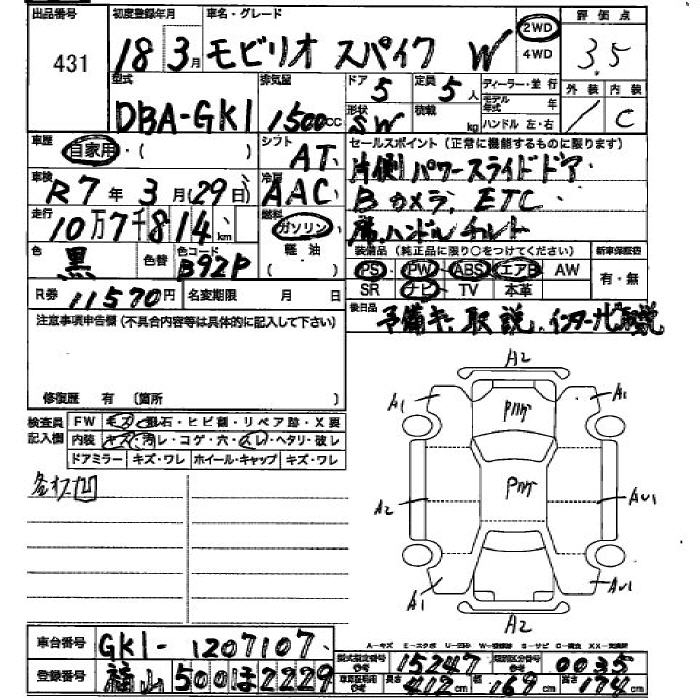 出品番号 初度登録年月 車名・グレード 評価点
431 18年3月 モビリオ スパイク W 2WD 4WD 3.5
型式 排気量 ドア 5 定員 5人 ディーラー・並行 外装 内装
DBA-GK1 1500cc 形状 SW 積載 kg モデル年式 年 ハンドル 左・右 / C
車歴 自家用・( ) シフト AT セールスポイント(正常に機能するものに限ります)
車検 R7年3月(29日) 冷房 AAC 片側パワースライドドア・
走行 10万7千814km 燃料 ガソリン 軽・油 Bカメラ、ETC
席、ハンドルチルト
色 黒 色替 色コード B92P 装備品(純正品に限り○をつけてください) 新車保証書
PS・PW・ABS・エアB・AW 有・無
SR ナビ・TV 本革
R券 11570円 名変期限 月 日 後日品 予備キー、取説、インターナビ取説
注意事項申告欄(不具合内容等は具体的に記入して下さい)
修復歴 有 〔箇所 〕
検査員記入欄 FW キズ・飛石・ヒビ割・リペア跡・X要
内装 キズ・汚レ・コゲ・穴・スレ・ヘタリ・破レ
ドアミラー キズ・ワレ ホイール・キャップ キズ・ワレ
A2
A1 A1
Pﾊｹ
Pﾊｹ
A2 AU1
A1 AU1
A2
車台番号 GK1-1207107
登録番号 福山 500 ほ 2229
A-キズ E-エクボ U-凹み W-補修跡 S-サビ C-腐食 XX-交換済
型式指定番号 15247 類別区分番号 0035
長さ 412cm 幅 169cm 高さ 174cm